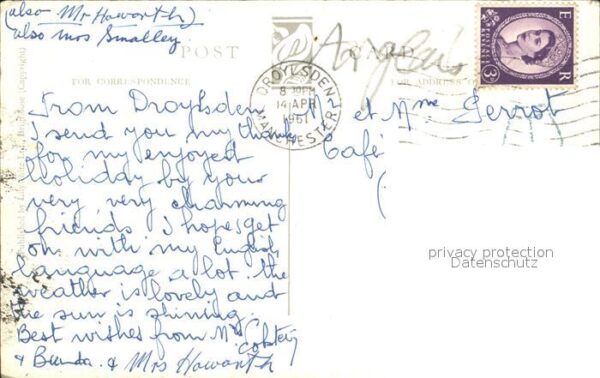 (also Mr Haworth)
also Mrs Smalley.
POST CARD
Anglais
FOR CORRESPONDENCE
FOR ADDRESS O
E R
POSTAGE
REVENUE
3D
DROYLSDEN
8 30PM
14 APR
1961
MANCHESTER
From Droylsden
I send you my thanks
for my enjoyed
holiday by your
very very charming
friends I hope get
on with my English
language a lot. the
weather is lovely and
the sun is shining.
Best wishes from Mrs
& Brenda. & Mrs Haworth
Mr et Mme Perrot
Café
(
privacy protection
Datenschutz